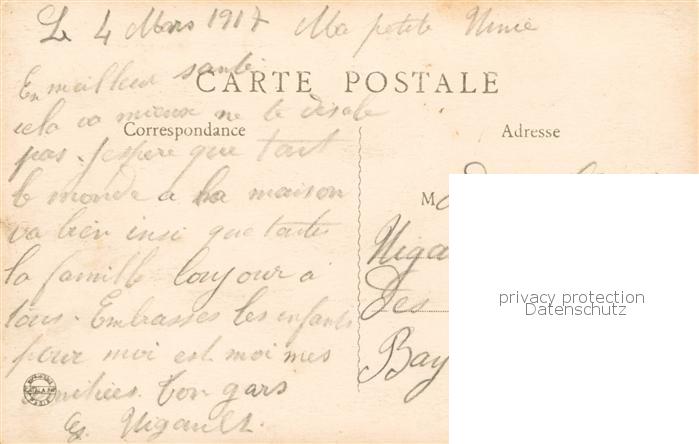 Le 4 Mars 1917 Ma petite Ninie
En meilleur santé
CARTE POSTALE
cela va mieux ne te désole
Correspondance
Adresse
pas. J'espere que tout
le monde a la maison
M
va bien insi que toute
la famille toujour a
tous. Embrasses les enfants
Des
pour moi est moi mes
Bay
amitiées. Ton gars
Nigault.
privacy protection
Datenschutz